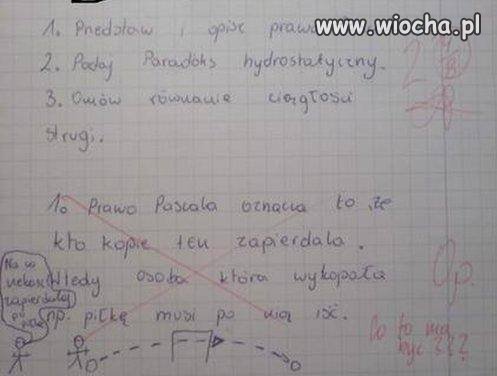 www.wiocha.pl
1. Przedstaw i opisz prawo
2. Podaj Paradoks hydrostatyczny.
3. Omów równanie ciągłości
strugi.
1. Prawo Pascala oznacza to, że
kto kopie ten zapierdala.
Wtedy osoba która wykopała
np. piłkę musi po nią iść.
Na co
czekasz
zapierdalaj
po piłkę
0p.
Co to ma
być???